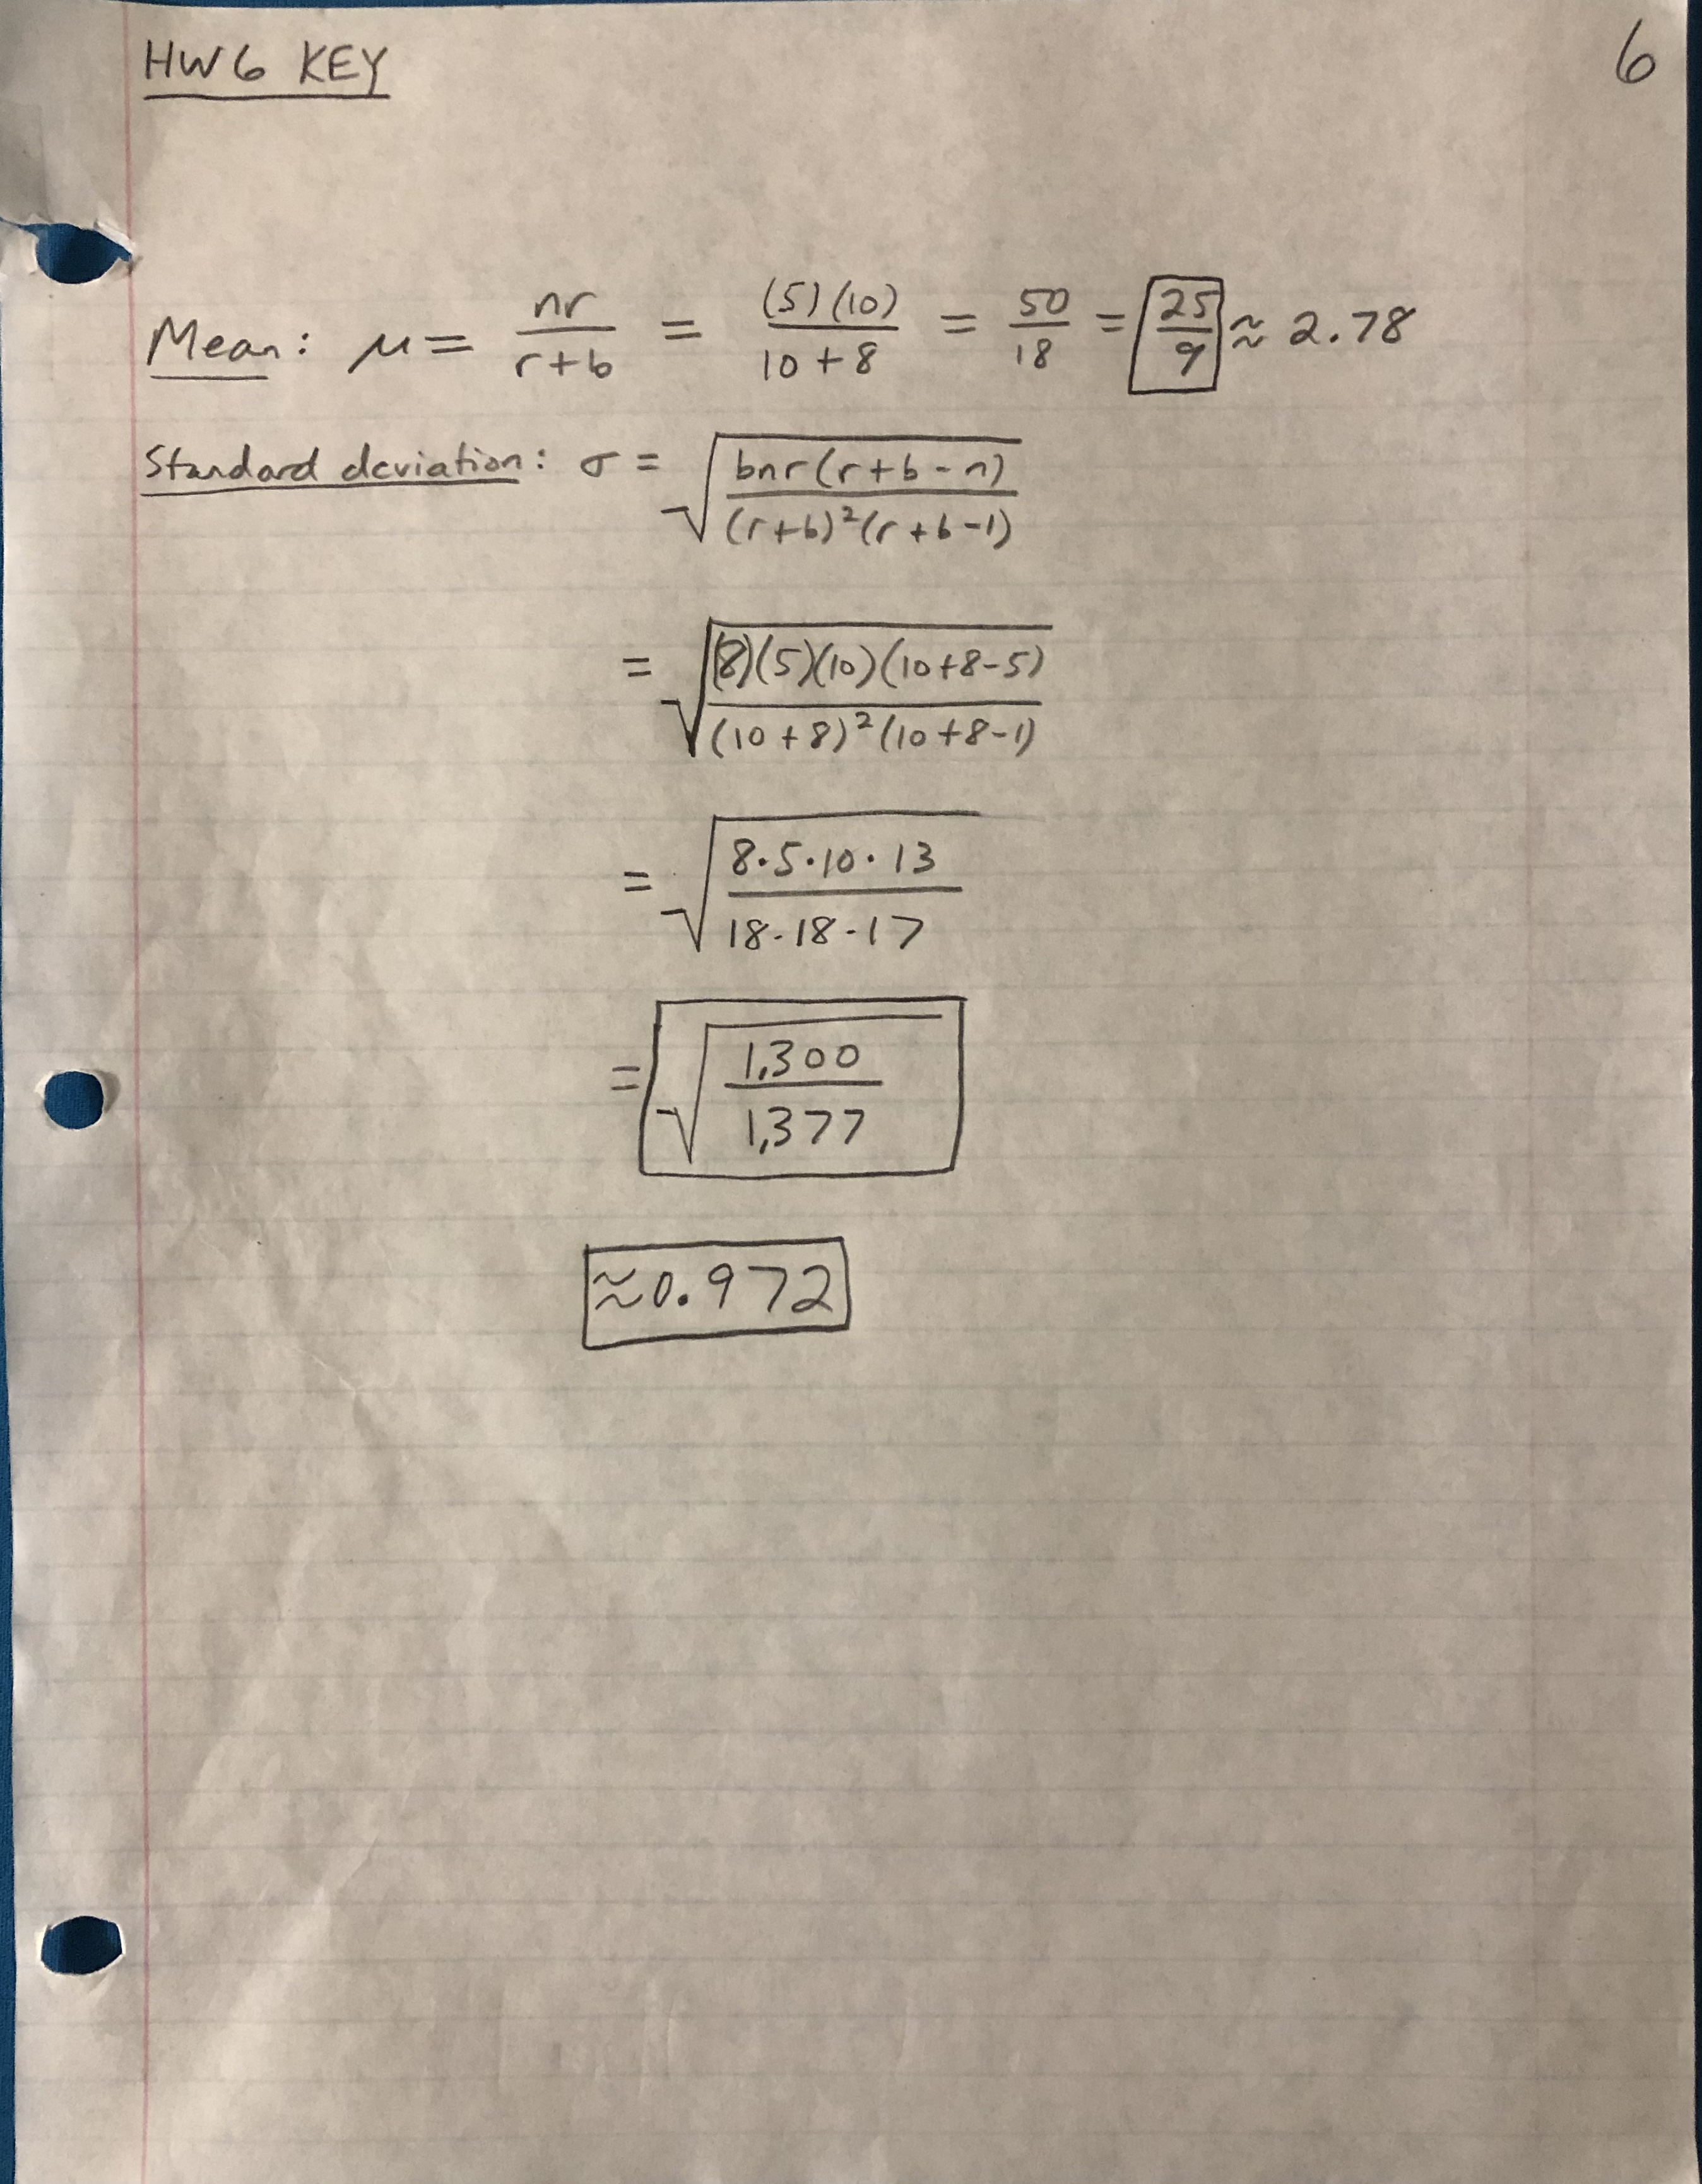 HW6 KEY 6
Mean: μ = nr/(r+b) = (5)(10)/(10+8) = 50/18 = 25/9 ≈ 2.78
Standard deviation: σ = √(bnr(r+b-n)/((r+b)²(r+b-1)))
= √((8)(5)(10)(10+8-5)/((10+8)²(10+8-1)))
= √(8·5·10·13/(18·18·17))
= √(1,300/1,377)
≈0.972